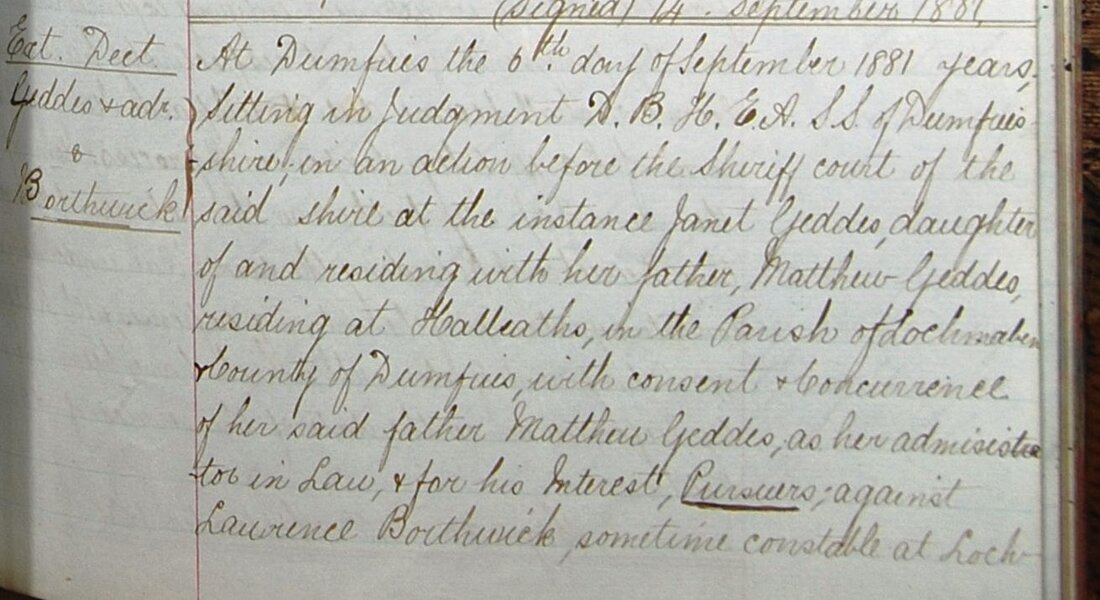 (Signed) 14. September 1881.
Ext. Dect
Geddes & adr.
&
Borthwick
At Dumfries the 6th. day of September 1881 years,
Sitting in Judgment D. B. H. E.A. S.S. of Dumfries-
shire, in an action before the Sheriff court of the
said shire at the instance Janet Geddes, daughter
of and residing with her father, Matthew Geddes,
residing at Halleaths, in the Parish of Lochmaben
& County of Dumfries, with consent & Concurrence
of her said father Matthew Geddes, as her admisistra
tor in Law, & for his Interest, Pursuers; against
Lawrence Borthwick, sometime constable at Loch-